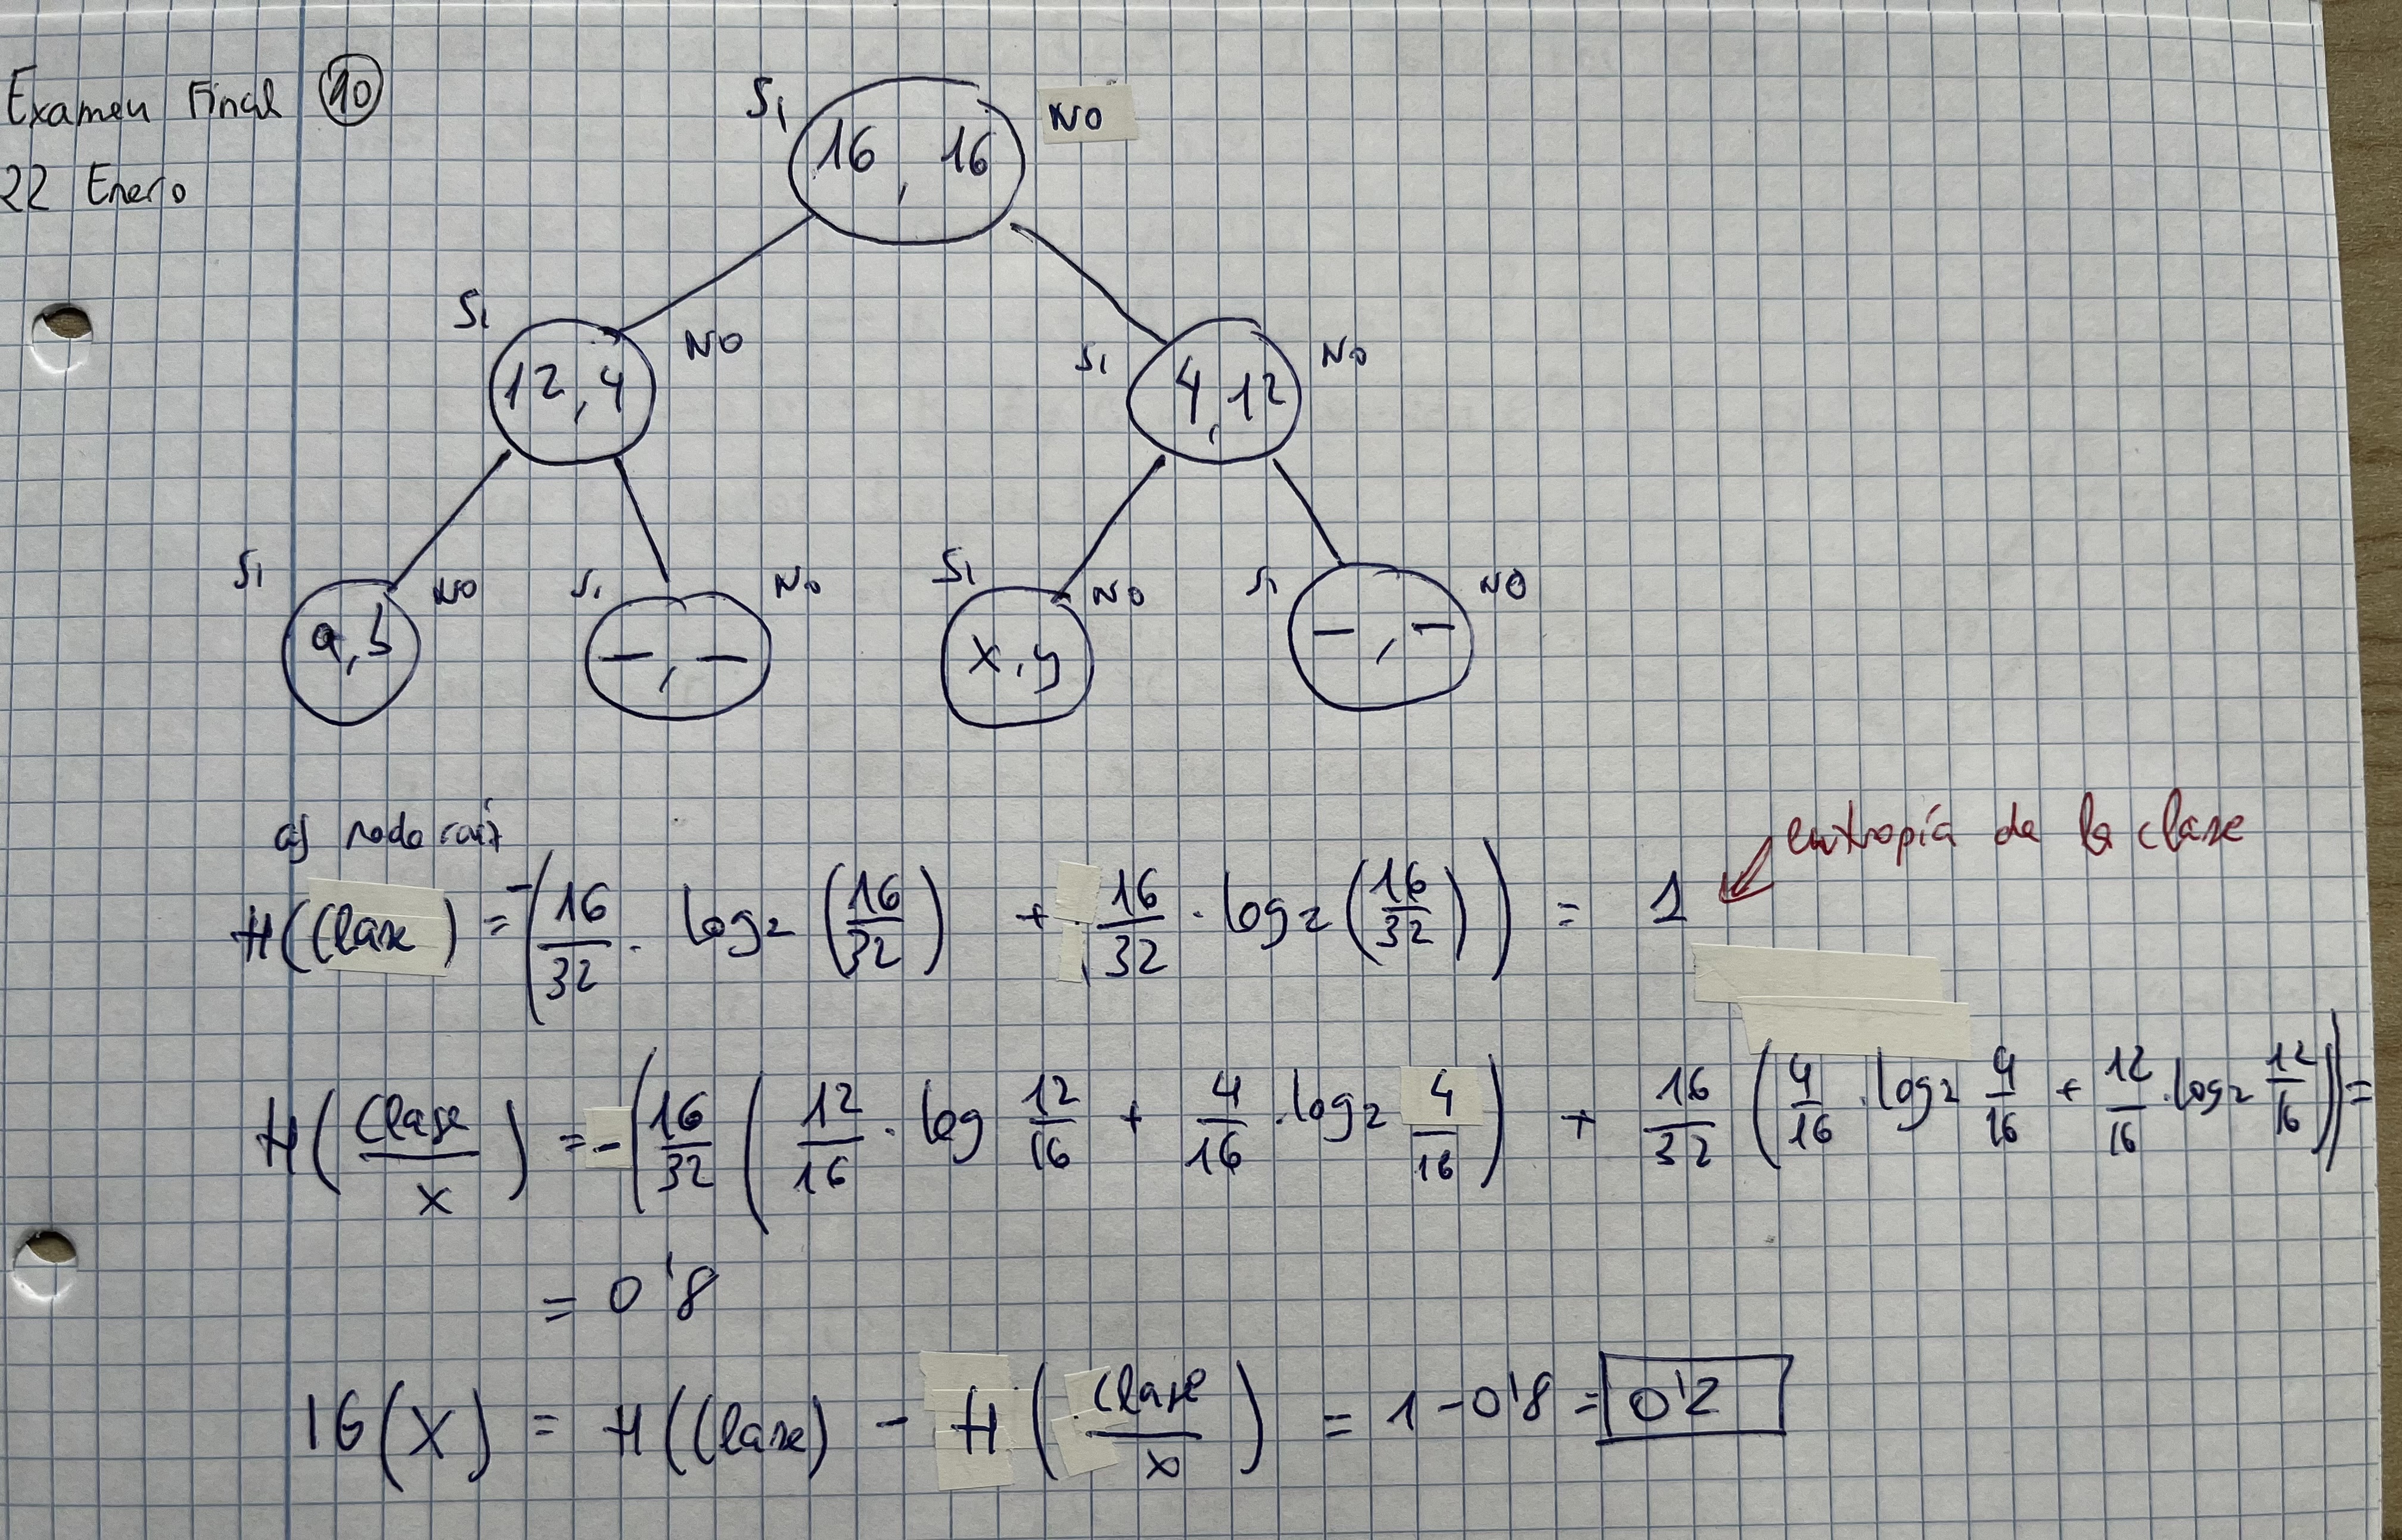 Examen Final 10
22 Enero
Si 16, 16 NO
Si 12, 4 NO
Si 4, 12 NO
Si a, b NO
Si —, — NO
Si x, y NO
Si —, — NO
a) nodo raiz
H(Clase) = -(16/32 · log₂ (16/32) + 16/32 · log₂ (16/32)) = 1
entropía de la clase
H(Clase/x) = -(16/32 (12/16 · log 12/16 + 4/16 · log₂ 4/16) + 16/32 (4/16 · log₂ 4/16 + 12/16 · log₂ 12/16)) =
= 0'8
IG(X) = H(Clase) - H(Clase/x) = 1-0'8 = 0'2